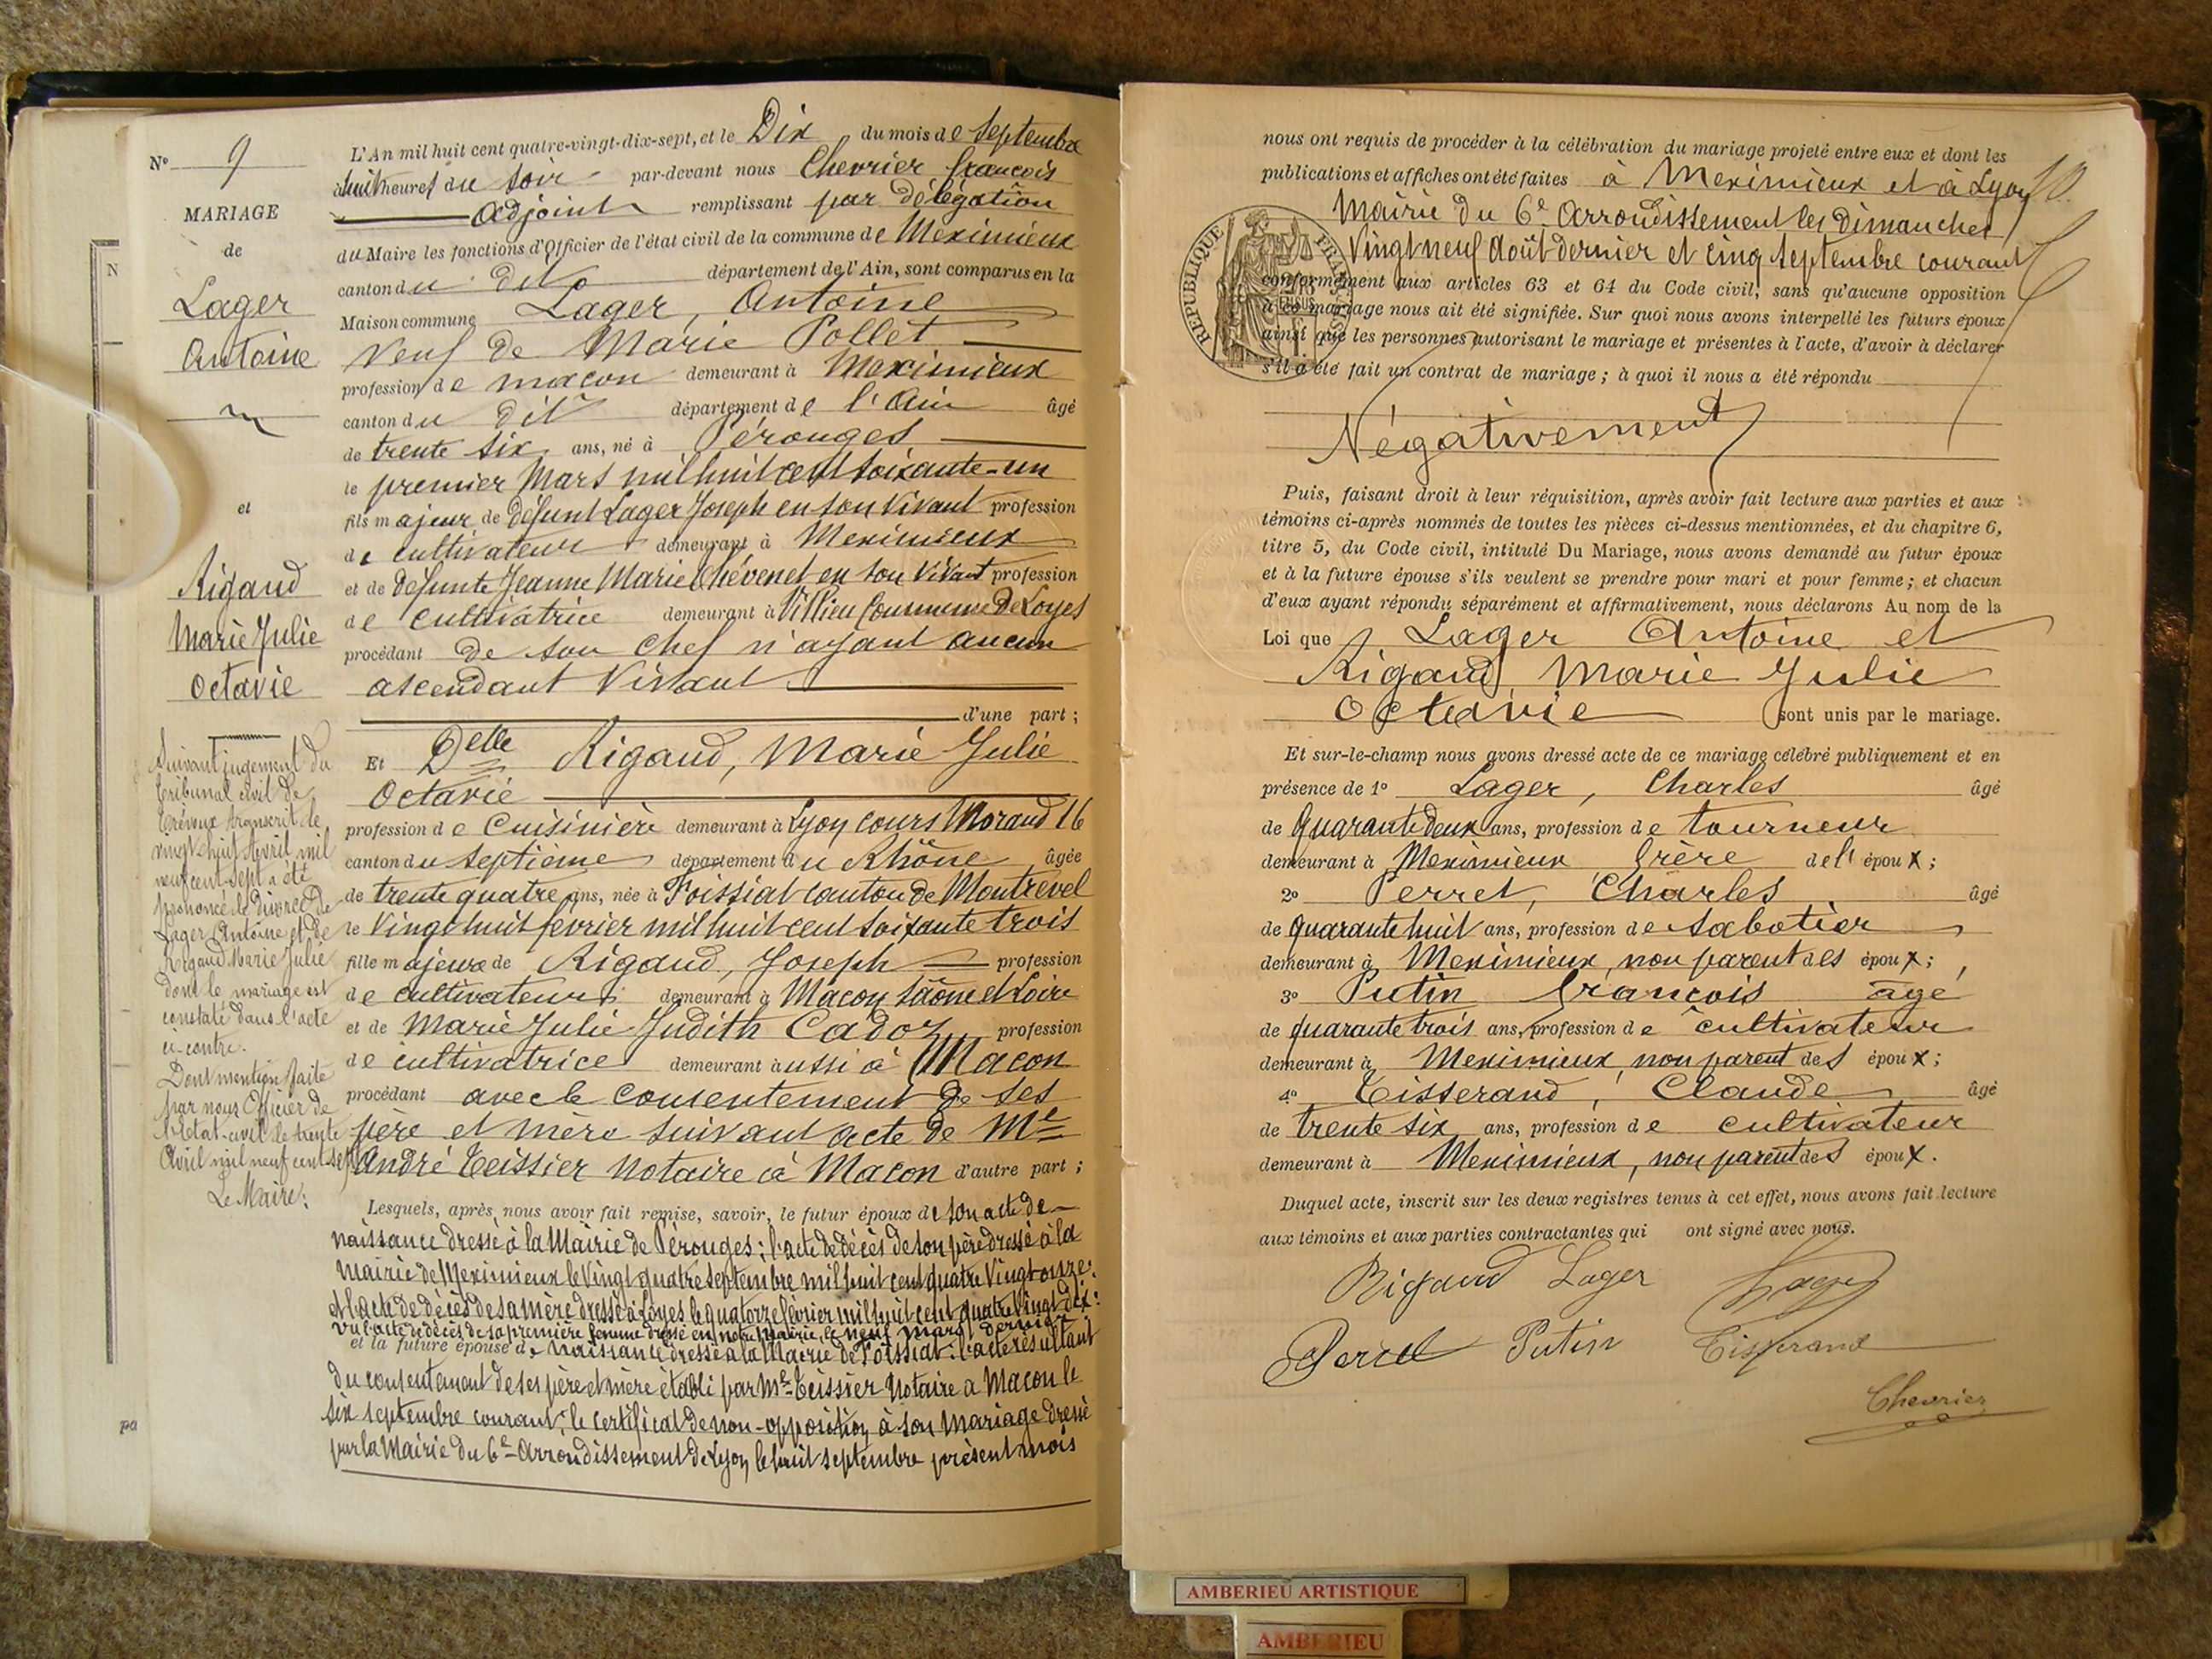 N
pa
N° 9
MARIAGE
de
Lager
Antoine
et
Rigaud
Marie Julie
Octavie
Suivant jugement du
tribunal civil de
Trévoux transcrit le
vingt huit Avril mil
neuf cent sept a été
prononcé le divorce de
Lager Antoine et de
Rigaud Marie Julie
dont le mariage est
constaté dans l'acte
ci-contre.
Dont mention faite
par nous Officier de
l'état-civil le trente
Avril mil neuf cent sept
Le Maire:
L'An mil huit cent quatre-vingt-dix-sept, et le Dix du mois de Septembre
à huit heures du soir par-devant nous Chevrier françois
adjoint remplissant par délégation
du Maire les fonctions d'Officier de l'état civil de la commune de Meximieux
canton du dit département de l'Ain, sont comparus en la
Maison commune Lager, Antoine
Veuf de Marie Pollet
profession de maçon demeurant à Meximieux
canton du dit département de l'Ain âgé
de trente six ans, né à Pérouges
le premier Mars mil huit cent soixante-un
fils majeur de défunt Lager Joseph en son vivant profession
de cultivateur demeurant à Meximieux
et de défunte Jeanne Marie Thévenet en son vivant profession
de cultivatrice demeurant à Villieu Commune de Loyes
procédant de son chef n'ayant aucun
ascendant vivant
d'une part;
Et Delle Rigaud, Marie Julie
Octavie
profession de Cuisinière demeurant à Lyon cours Morand 16
canton du septième département du Rhône âgée
de trente quatre ans, née à Foissiat canton de Montrevel
le Vingt huit février mil huit cent soixante trois
fille majeure de Rigaud, Joseph profession
de cultivateur demeurant à Macon Saône et Loire
et de Marie Julie Judith Cadoz profession
de cultivatrice demeurant aussi à Macon
procédant avec le consentement de ses
père et mère suivant acte de Me
André Teissier Notaire à Macon d'autre part;
Lesquels, après nous avoir fait remise, savoir, le futur époux de son acte de
naissance dressé à la Mairie de Pérouges; l'acte de décès de son père dressé à la
mairie de Meximieux le Vingt quatre septembre mil huit cent quatre Vingt onze;
et l'acte de décès de sa mère dressé à Loyes le quatorze février mil huit cent quatre Vingt dix;
vu l'acte de décès de sa première femme dressé en notre Mairie, le neuf mars dernier
et la future épouse de naissance dressé à la Mairie de Foissiat; l'acte résultant
du consentement de ses père et mère établi par Me Teissier Notaire à Macon le
six septembre courant; le certificat de non-opposition à son mariage dressé
par la Mairie du 6e Arrondissement de Lyon le huit septembre présent mois
nous ont requis de procéder à la célébration du mariage projeté entre eux et dont les
publications et affiches ont été faites à Meximieux et à Lyon
Mairie du 6e Arrondissement les dimanches
Vingt neuf Août dernier et cinq septembre courant
RÉPUBLIQUE FRANÇAISE
conformément aux articles 63 et 64 du Code civil, sans qu'aucune opposition
à ce mariage nous ait été signifiée. Sur quoi nous avons interpellé les futurs époux
ainsi que les personnes autorisant le mariage et présentes à l'acte, d'avoir à déclarer
s'il a été fait un contrat de mariage; à quoi il nous a été répondu
Négativement
Puis, faisant droit à leur réquisition, après avoir fait lecture aux parties et aux
témoins ci-après nommés de toutes les pièces ci-dessus mentionnées, et du chapitre 6,
titre 5, du Code civil, intitulé Du Mariage, nous avons demandé au futur époux
et à la future épouse s'ils veulent se prendre pour mari et pour femme; et chacun
d'eux ayant répondu séparément et affirmativement, nous déclarons Au nom de la
Loi que Lager Antoine et
Rigaud Marie Julie
Octavie sont unis par le mariage.
Et sur-le-champ nous avons dressé acte de ce mariage célébré publiquement et en
présence de 1° Lager, Charles âgé
de quarante deux ans, profession de tourneur
demeurant à Meximieux frère de l'époux;
2° Perret, Charles âgé
de quarante huit ans, profession de sabotier
demeurant à Meximieux, non parent des époux;
3° Putin françois âgé
de quarante trois ans, profession de cultivateur
demeurant à Meximieux, non parent des époux;
4° Tisserand, Claude âgé
de trente six ans, profession de cultivateur
demeurant à Meximieux, non parent des époux.
Duquel acte, inscrit sur les deux registres tenus à cet effet, nous avons fait lecture
aux témoins et aux parties contractantes qui ont signé avec nous.
Rigaud Lager Lager
Perret Putin Tisserand
Chevrier
AMBERIEU ARTISTIQUE
AMBERIEU